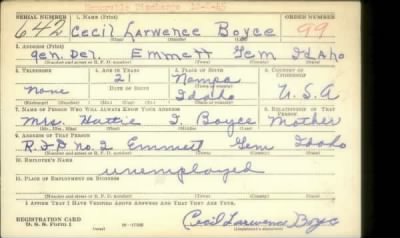 Honorable Discharge 12-2-45
SERIAL NUMBER 1. NAME (Print) ORDER NUMBER
642 Cecil Larwence Boyce 99
(First) (Middle) (Last)
2. ADDRESS (Print)
gen Del. Emmett Gem Idaho
(Number and street or R. F. D. number) (Town) (County) (State)
3. TELEPHONE 4. AGE IN YEARS 5. PLACE OF BIRTH 6. COUNTRY OF CITIZENSHIP
21 Nampa
none DATE OF BIRTH Idaho U.S.A
7. NAME OF PERSON WHO WILL ALWAYS KNOW YOUR ADDRESS 8. RELATIONSHIP OF THAT PERSON
Mrs. Hattie I Boyce Mother
(Mr., Mrs., Miss) (First) (Middle) (Last)
9. ADDRESS OF THAT PERSON
R.F.D no. 2 Emmett Gem Idaho
(Number and street or R. F. D. number) (Town) (County) (State)
10. EMPLOYER'S NAME
unemployed
11. PLACE OF EMPLOYMENT OR BUSINESS
(Number and street or R. F. D. number) (Town) (County) (State)
I AFFIRM THAT I HAVE VERIFIED ABOVE ANSWERS AND THAT THEY ARE TRUE.
REGISTRATION CARD
D. S. S. Form 1 Cecil Larwence Boyce
(Registrant's signature)